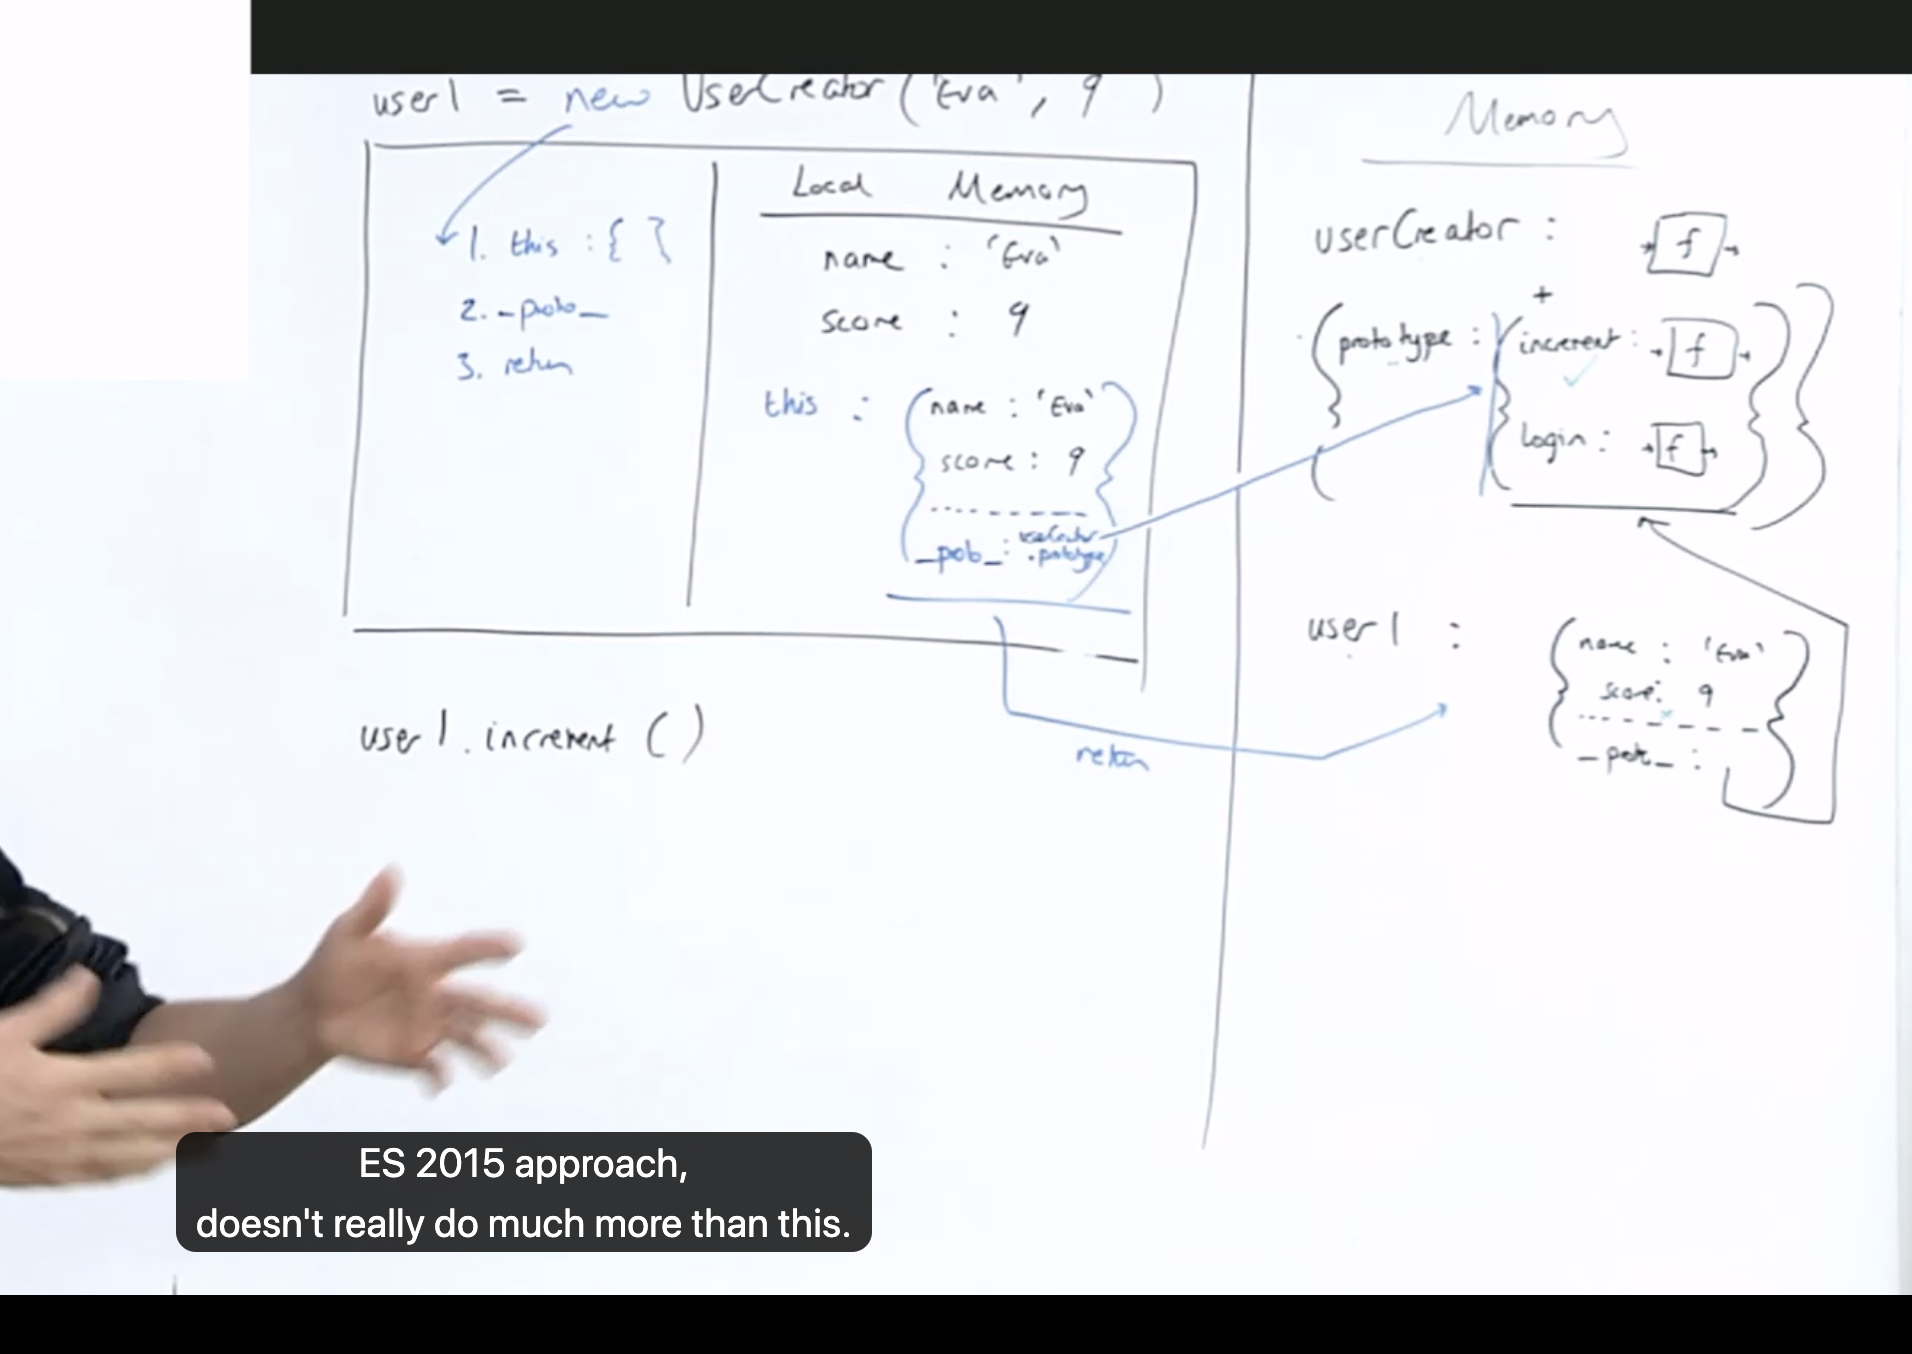 user1 = new UserCreator ( 'Eva' , 9 )
Local Memory
1. this : { }
2. _proto_
3. return
name : 'Eva'
score : 9
this : { name : 'Eva'
score : 9
_proto_ : userCreator
.prototype }
user1.increment ( )
return
Memory
userCreator : f
+
{ prototype : { increment : f
login : f } }
user1 : { name : 'Eva'
score : 9
_proto_ : }
ES 2015 approach,
doesn't really do much more than this.